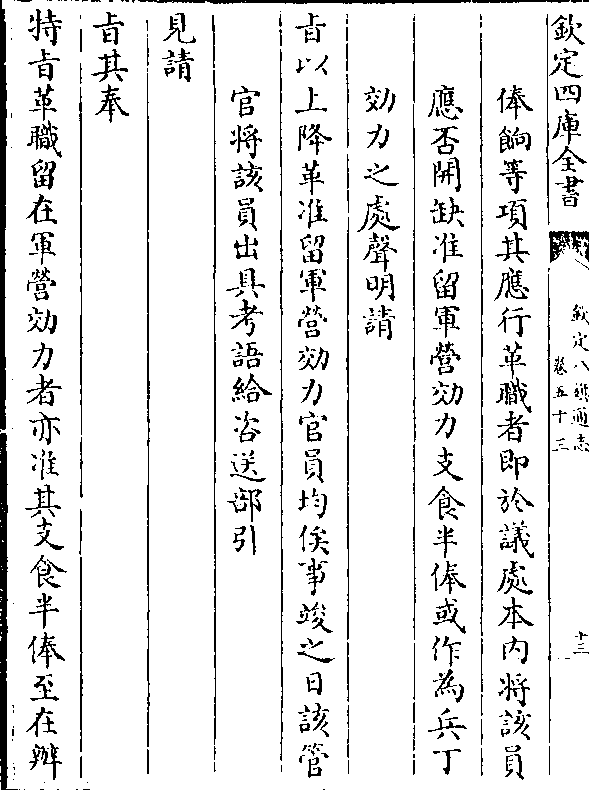 欽定四庫全書
欽定八旗通志
卷五十三
十三
俸餉等項其應行革職者即於議處本内將該員
應否開缺准留軍營効力支食半俸或作為兵丁
効力之處聲明請
㫖以上降革准留軍營効力官員均俟事竣之日該管
官将該員出具考語給咨送部引
見請
㫖其奉
特㫖革職留在軍營効力者亦准其支食半俸至在辦